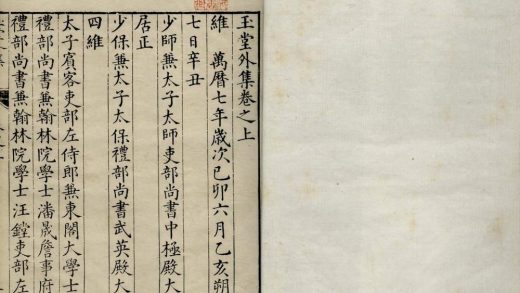 玉堂外集卷之上
維 萬曆七年歲次己卯六月乙亥朔
七日辛丑
少師兼太子太師吏部尚書中極殿大
居正
少保兼太子太保禮部尚書武英殿大
四維
太子賓客吏部左侍郎兼東閣大學士
禮部尚書兼翰林院學士潘晟詹事府
禮部尚書兼翰林院學士汪鏜吏部左